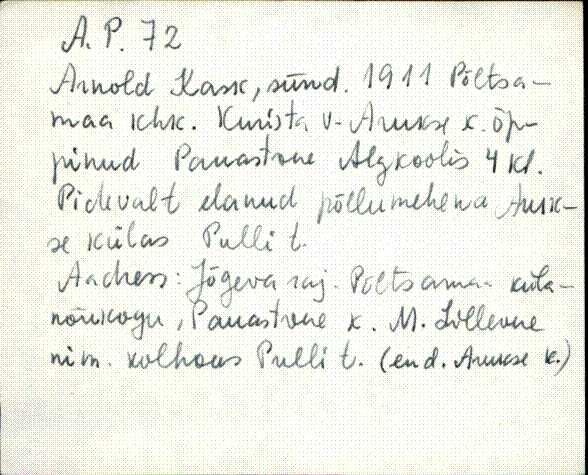 A. P. 72
Arnold Kask, sünd. 1911 Põltsa-
maa khk. Kurista v. Arukse k. õp-
pinud Pauastvere Algkoolis 4 kl.
Pidevalt elanud põllumehena Aruk-
se külas Pulli t.
Aadress: Jõgeva raj. Põltsamaa küla-
nõukogu, Pauastvere k. M. Lillevere
nim. kolhoos Pulli t. (end. Arukse k.)